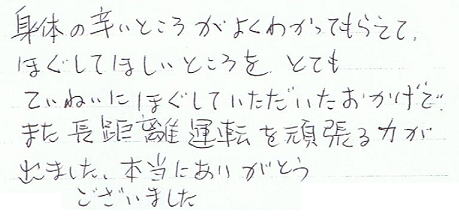 身体の辛いところがよくわかってもらえて、
ほぐしてほしいところを、とても
ていねいにほぐしていただいたおかげで
また長距離運転を頑張る力が
出ました、本当にありがとう
ございました